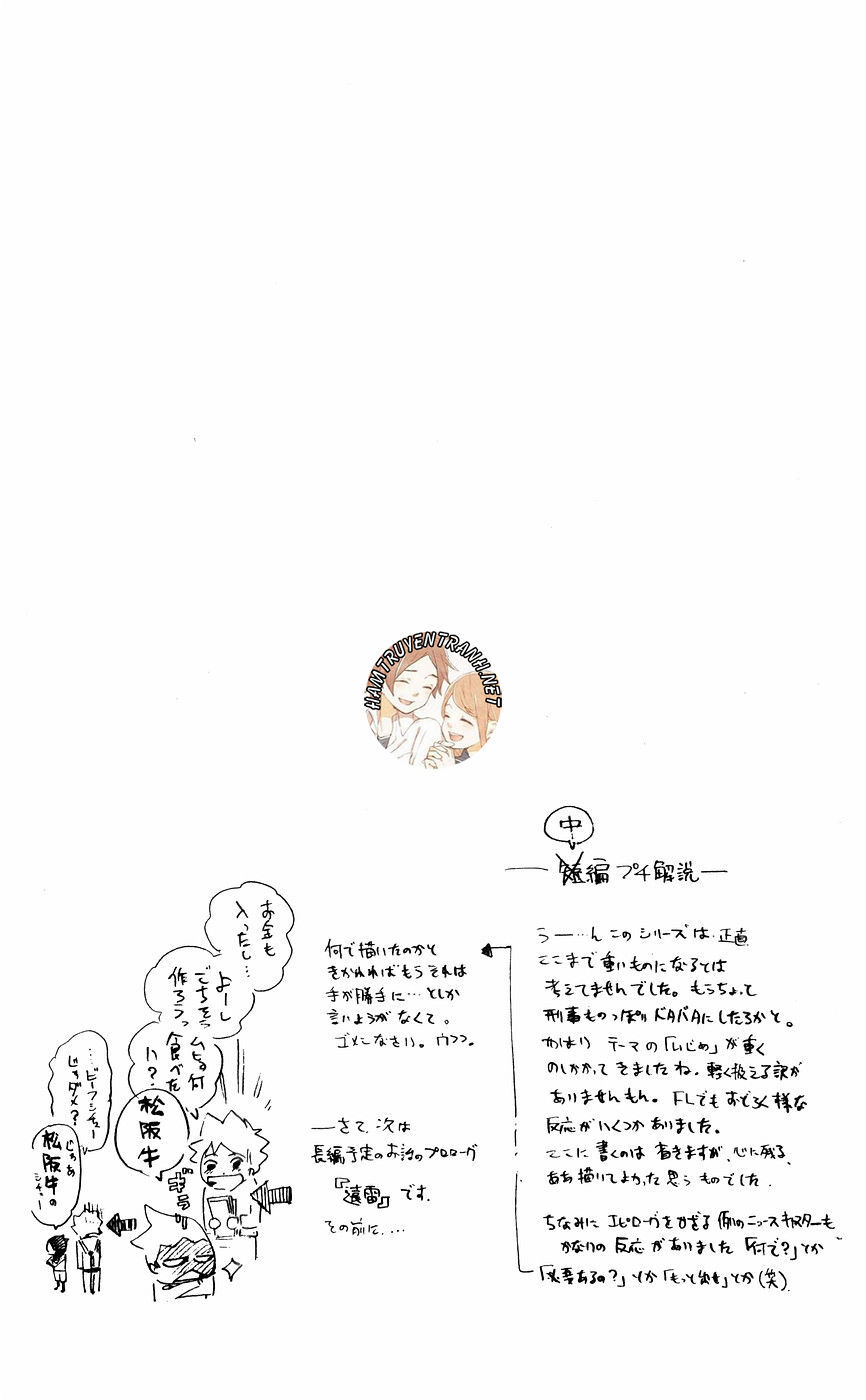 中
編プチ解説
うー…ん このシリーズは 正直
ここまで重いものになるとは
考えてませんでした。もうちょって
刑事ものっぽりドタバタにしたろかと。
やはり テーマの「いじめ」が重く
のしかかってきましたね。軽く扱える訳が
ありませんもん。FLでもおどろく様な
反応がいくつかありました。
ここに書くのは省きますが、心に残る、
ああ描いてよかった思うものでした。
ちなみに エピローグをかざる例のニュースキャスターも
かなりの反応がありました「何で?」とか
「必要あるの?」とか「もっと出せ」とか(笑)
何で描いたのかと
きかれればもうそれは
手が勝手に…としか
言いようがなくて。
ゴメンなさい。ウフフ。
―さて、次は
長編予定のお話のプロローグ
『遠雷』です。
その前に…
お金も
入ったし…
よーし
ごちそう
作ろうっ
ムヒョ何
食べた
い?
松阪牛
ギラリ
…ビーフシチュー
じゃダメ?
じゃあ
松阪牛の
シチュー
HAMTRUYENTRANH.NET